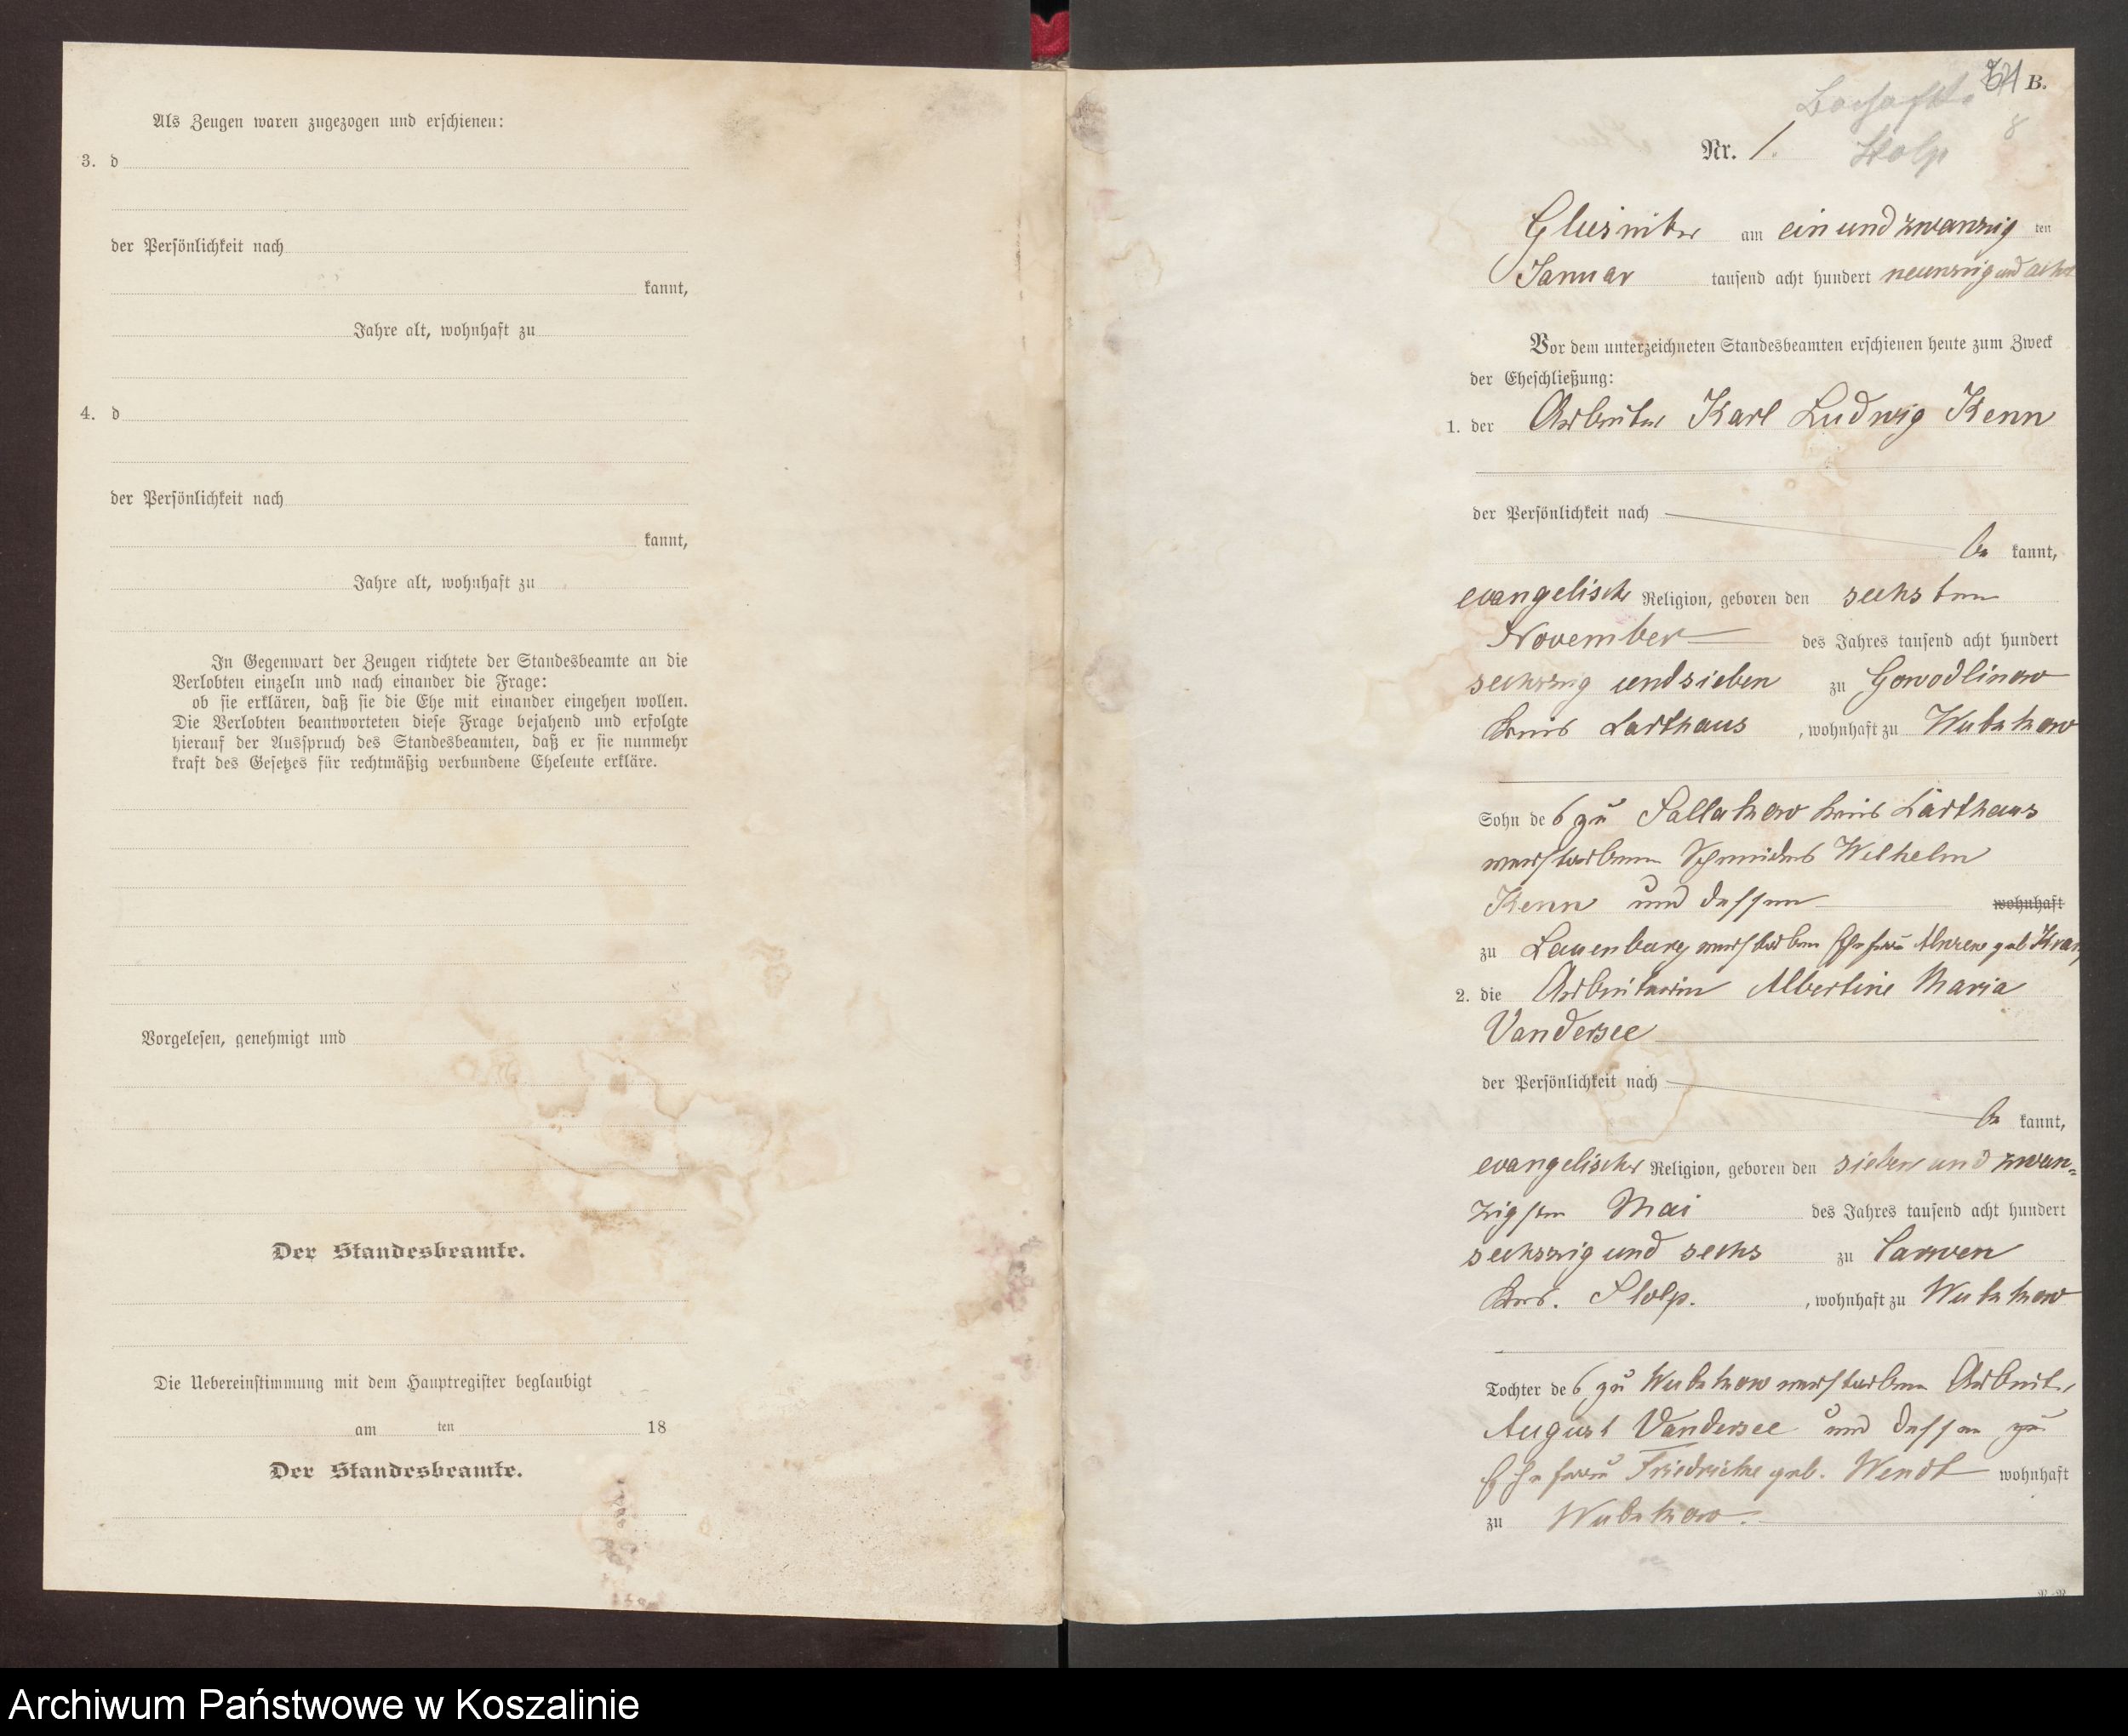 Als Zeugen waren zugezogen und erschienen:
3. d
der Persönlichkeit nach
kannt,
Jahre alt, wohnhaft zu
4. d
der Persönlichkeit nach
kannt,
Jahre alt, wohnhaft zu
In Gegenwart der Zeugen richtete der Standesbeamte an die
Verlobten einzeln und nach einander die Frage:
ob sie erklären, daß sie die Ehe mit einander eingehen wollen.
Die Verlobten beantworteten diese Frage bejahend und erfolgte
hierauf der Ausspruch des Standesbeamten, daß er sie nunmehr
kraft des Gesetzes für rechtmäßig verbundene Eheleute erkläre.
Vorgelesen, genehmigt und
Der Standesbeamte.
Die Uebereinstimmung mit dem Hauptregister beglaubigt
am ten 18
Der Standesbeamte.
B.
8
Nr. 1. Stolp
Glusnitz am ein und zwanzig ten
Januar tausend acht hundert neunzig und acht
Vor dem unterzeichneten Standesbeamten erschienen heute zum Zweck
der Eheschließung:
1. der Arbeiter Karl Ludwig Kenn
der Persönlichkeit nach
be kannt,
evangelischer Religion, geboren den sechsten
November des Jahres tausend acht hundert
sechszig und sieben zu Gowodlinow
Kreis Carthaus, wohnhaft zu Wutzkow
Sohn des zu Sallakow Kreis Carthaus
verstorbenen Schmiedes Wilhelm
Kenn und dessen wohnhaft
zu Lauenburg verstorbenen Ehefrau geb
2. die Arbeiterin Albertine Maria
Vandersee
der Persönlichkeit nach
be kannt,
evangelischer Religion, geboren den sieben und zwan=
zigsten Mai des Jahres tausend acht hundert
sechszig und sechs zu Darsen
Kreis. Stolp., wohnhaft zu Wutzkow
Tochter des zu Wutzkow verstorbenen Arbeiter
August Vandersee und dessen zu
Ehefrau Friedricke geb. Wendt wohnhaft
zu Wutzkow.
Archiwum Państwowe w Koszalinie